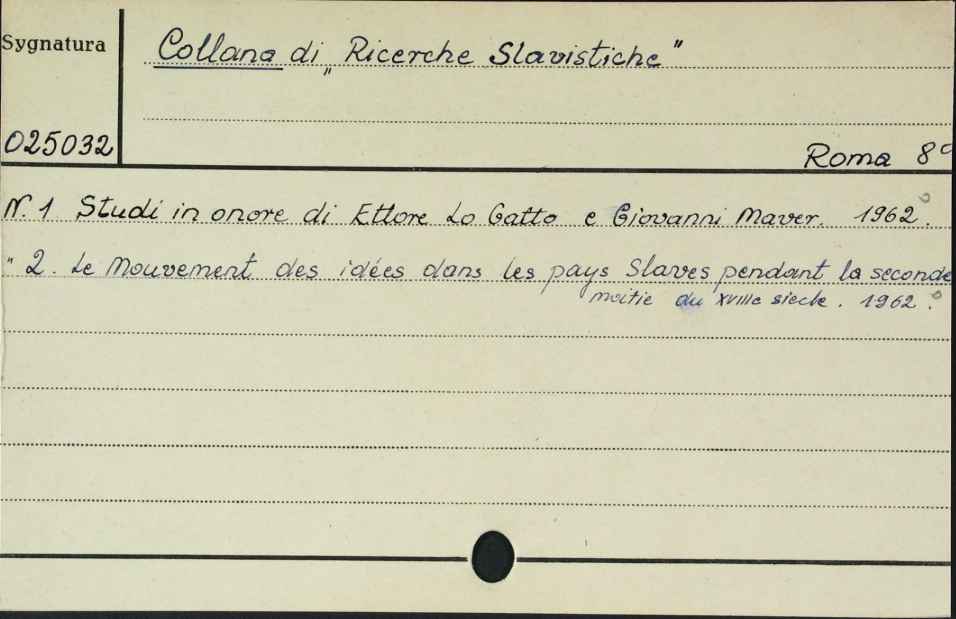 Sygnatura
Collana di „Ricerche Slavistiche"
025032
Roma 8°
N. 1 Studi in onore di Ettore Lo Gatto e Giovanni Maver. 1962.
" 2. Le Mouvement des idées dans les pays Slaves pendant la seconde
moitie du XVIIIe siecle. 1962.